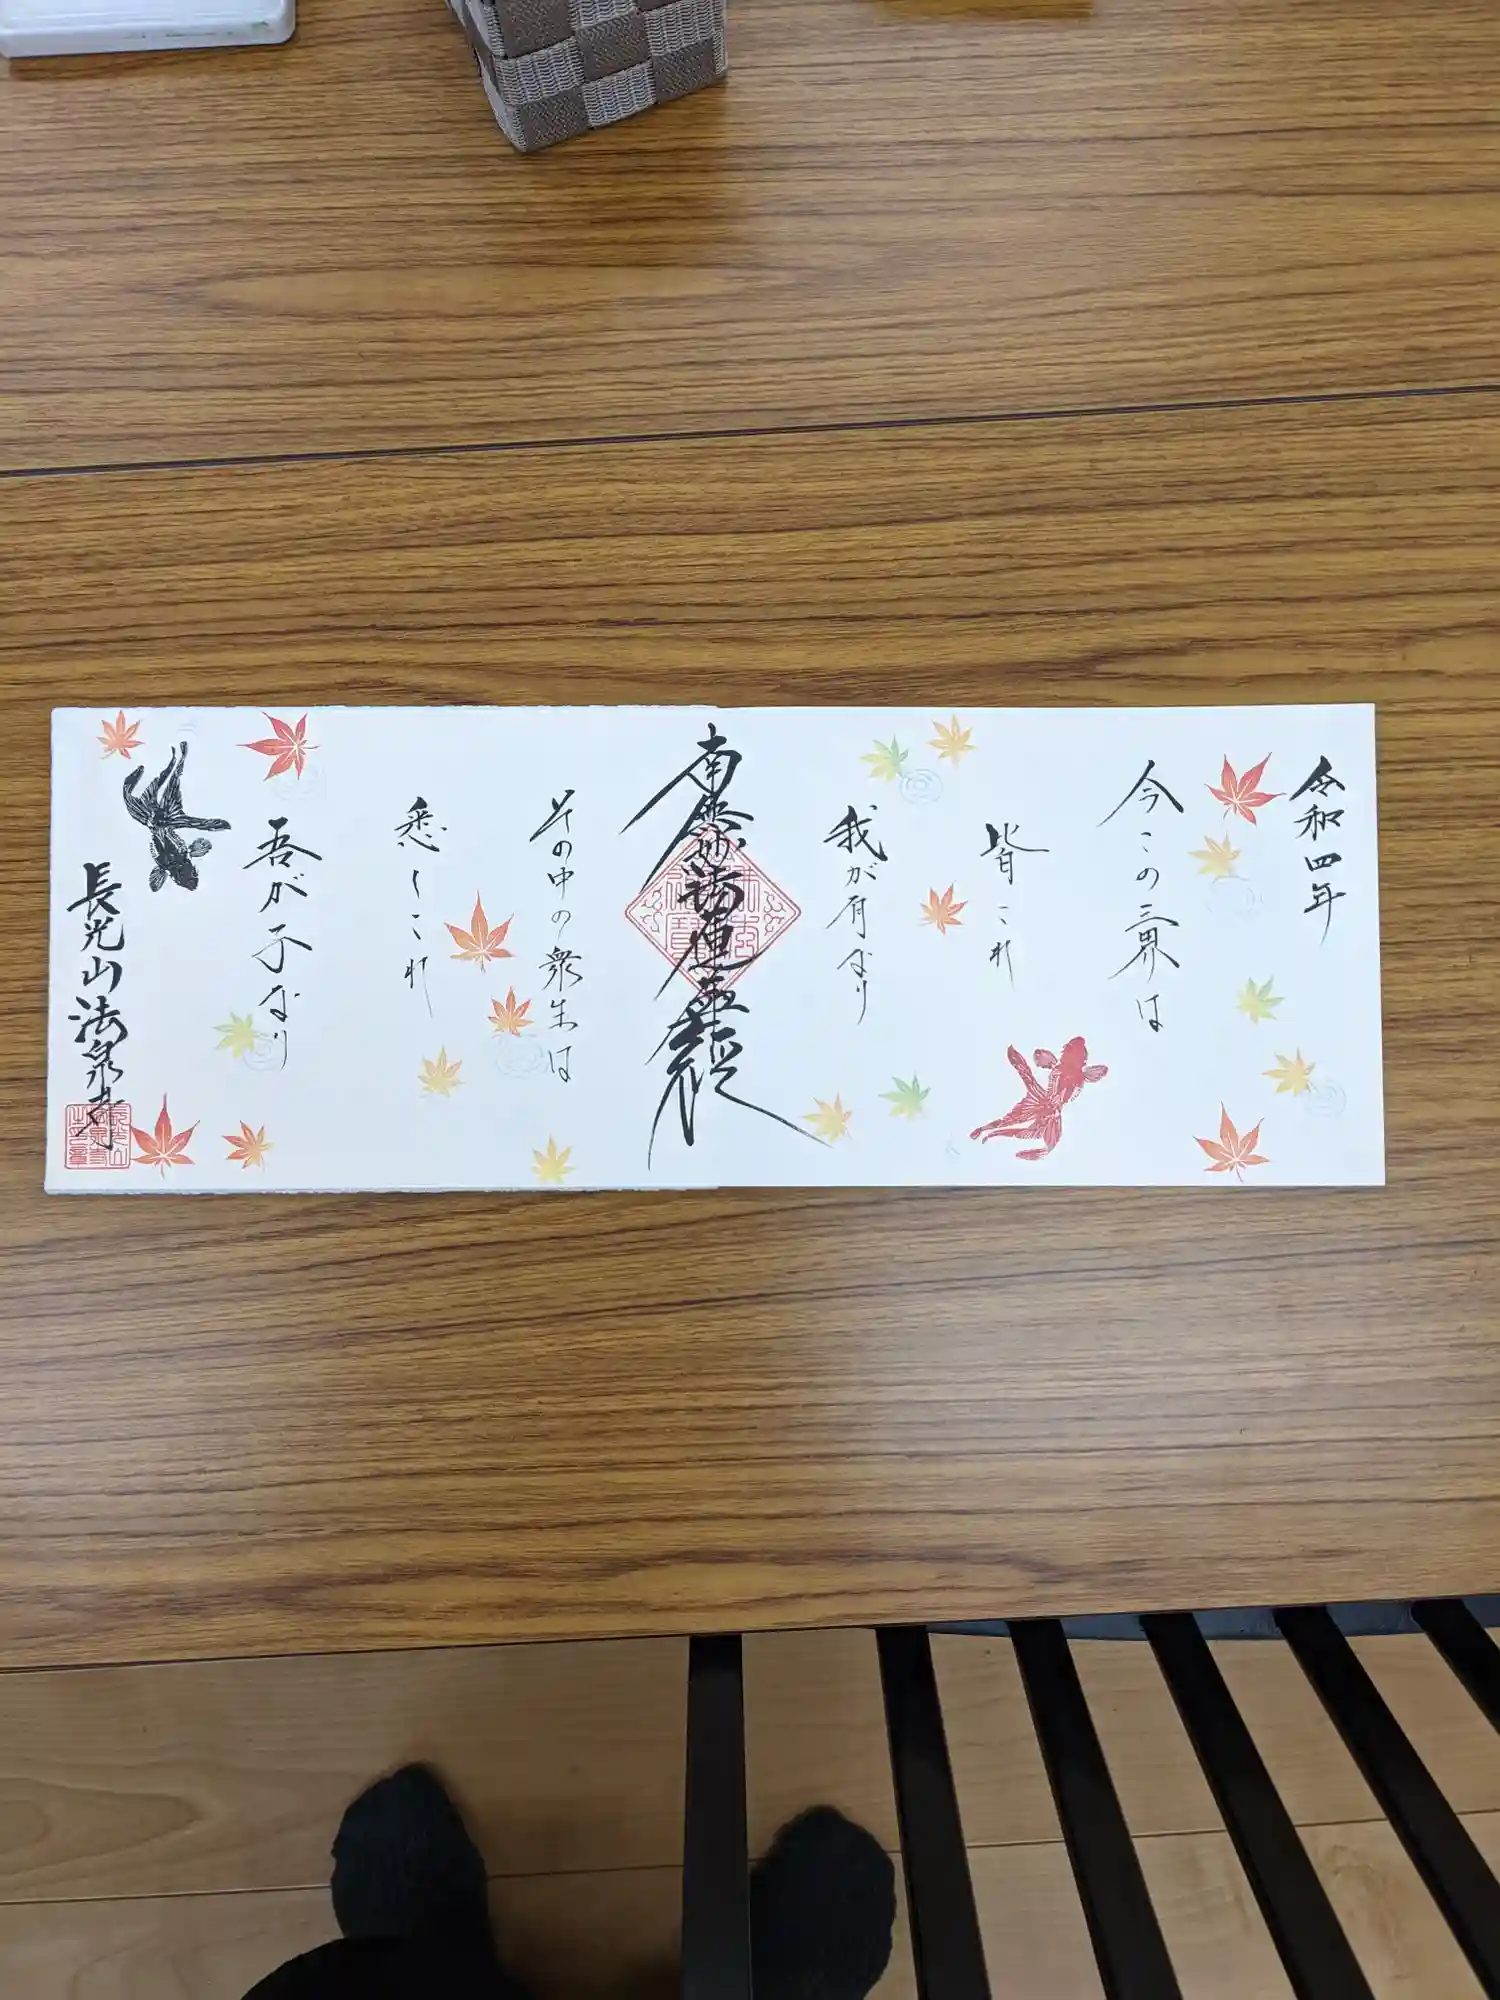 令和四年
今この三界は
皆これ
我が有なり
南無妙法蓮華経
その中の衆生は
悉くこれ
吾が子なり
長光山法泉寺